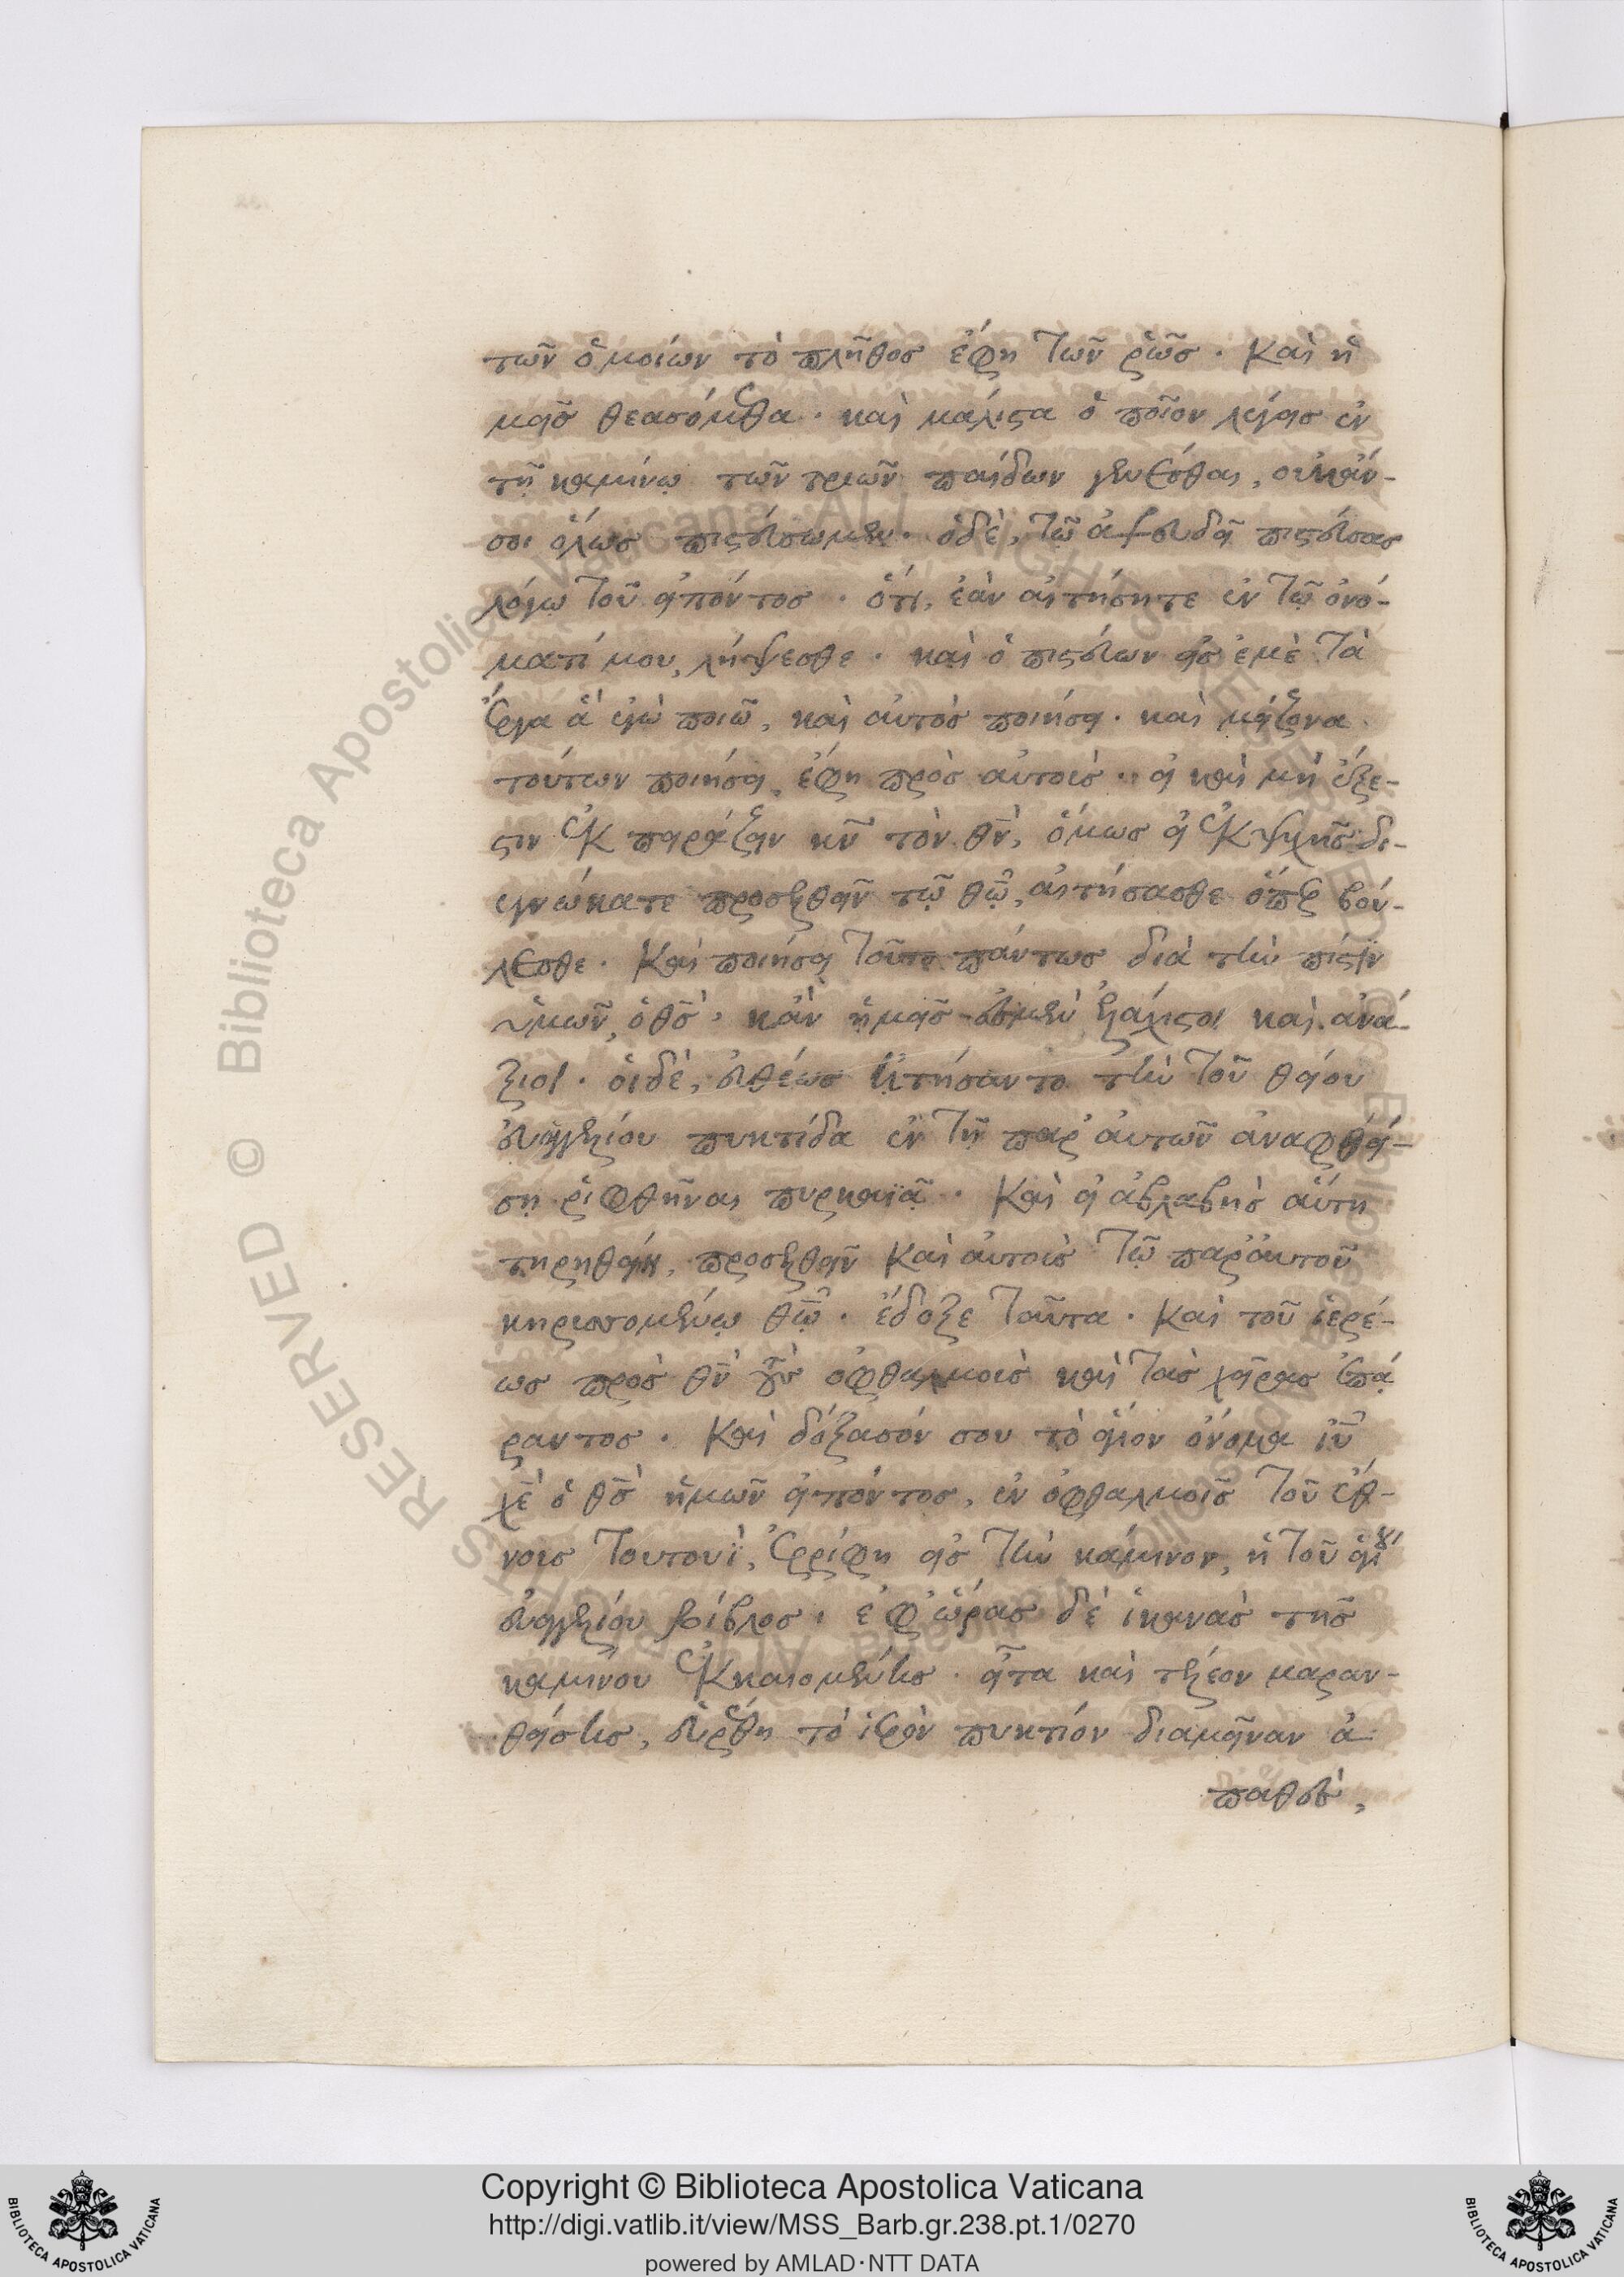 τῶν ὁμοίων τὸ πλῆθος ἔφη τῶν ῥῶς. καὶ ἡ
μεῖς θεασόμεθα. καὶ μάλιστα ὁποῖον λέγεις ἐν
τῇ καμίνῳ τῶν τριῶν παίδων γενέσθαι, οὐκἄν
σοι ὅλως πιστεύσωμεν. ὁδὲ, τῷ ἀψευδεῖ πιστεύσας
λόγῳ τοῦ εἰπόντος. ὅτι, ἐὰν αἰτήσητε ἐν τῷ ὀνό-
ματί μου, λήψεσθε. καὶ ὁ πιστεύων εἰς ἐμὲ τὰ
ἔργα ἃ ἐγὼ ποιῶ, καὶ αὐτὸς ποιήσει. καὶ μείζονα
τούτων ποιήσει, ἔφη πρὸς αὐτοὺς. εἰ καὶ μὴ ἔξε-
στιν ἐκπειράζειν κν τὸν θν, ὅμως εἰ ἐκ ψυχῆς δι-
εγνώκατε προσελθεῖν τῷ θῷ, αἰτήσασθε ὅπερ βού-
λεσθε. καὶ ποιήσει τοῦτο πάντως διὰ τὴν πίστιν
ὑμῶν, ὁ θς. κἂν ἡμεῖς ἐσμὲν ἐλάχιστοι καὶ ἀνά-
ξιοι. οἱδὲ, εὐθέως ᾐτήσαντο τὴν τοῦ θείου
εὐαγγελίου πυκτίδα ἐν τῇ παρ' αὐτῶν ἀναφθεί-
σῃ ῥιφθῆναι πυρκαϊᾷ. καὶ εἰ ἀβλαβὴς αὕτη
τηρηθείη, προσελθεῖν καὶ αὐτοὺς τῷ παρ' αὐτοῦ
κηρυττομένῳ θῷ. ἔδοξε ταῦτα. καὶ τοῦ ἱερέ-
ως πρὸς θν τοὺς ὀφθαλμοὺς καὶ τὰς χεῖρας ἐπά
ραντος. καὶ δόξασόν σου τὸ ἅγιον ὄνομα ιυ
χε ὁ θς ἡμῶν εἰπόντος, ἐν ὀφθαλμοῖς τοῦ ἔθ-
νους τουτουῒ, ἐρρίφη εἰς τὴν κάμινον, ἡ τοῦ ἁγίου
εὐαγγελίου βίβλος. ἐφ' ὥρας δὲ ἱκανὰς τῆς
καμίνου ἐκκαιομένης. εἶτα καὶ τελέον μαραν-
θείσης, εὑρέθη τὸ ἱερὸν πυκτίον διαμεῖναν ἀ
παθὲς,
Copyright © Biblioteca Apostolica Vaticana
http://digi.vatlib.it/view/MSS_Barb.gr.238.pt.1/0270
powered by AMLAD·NTT DATA